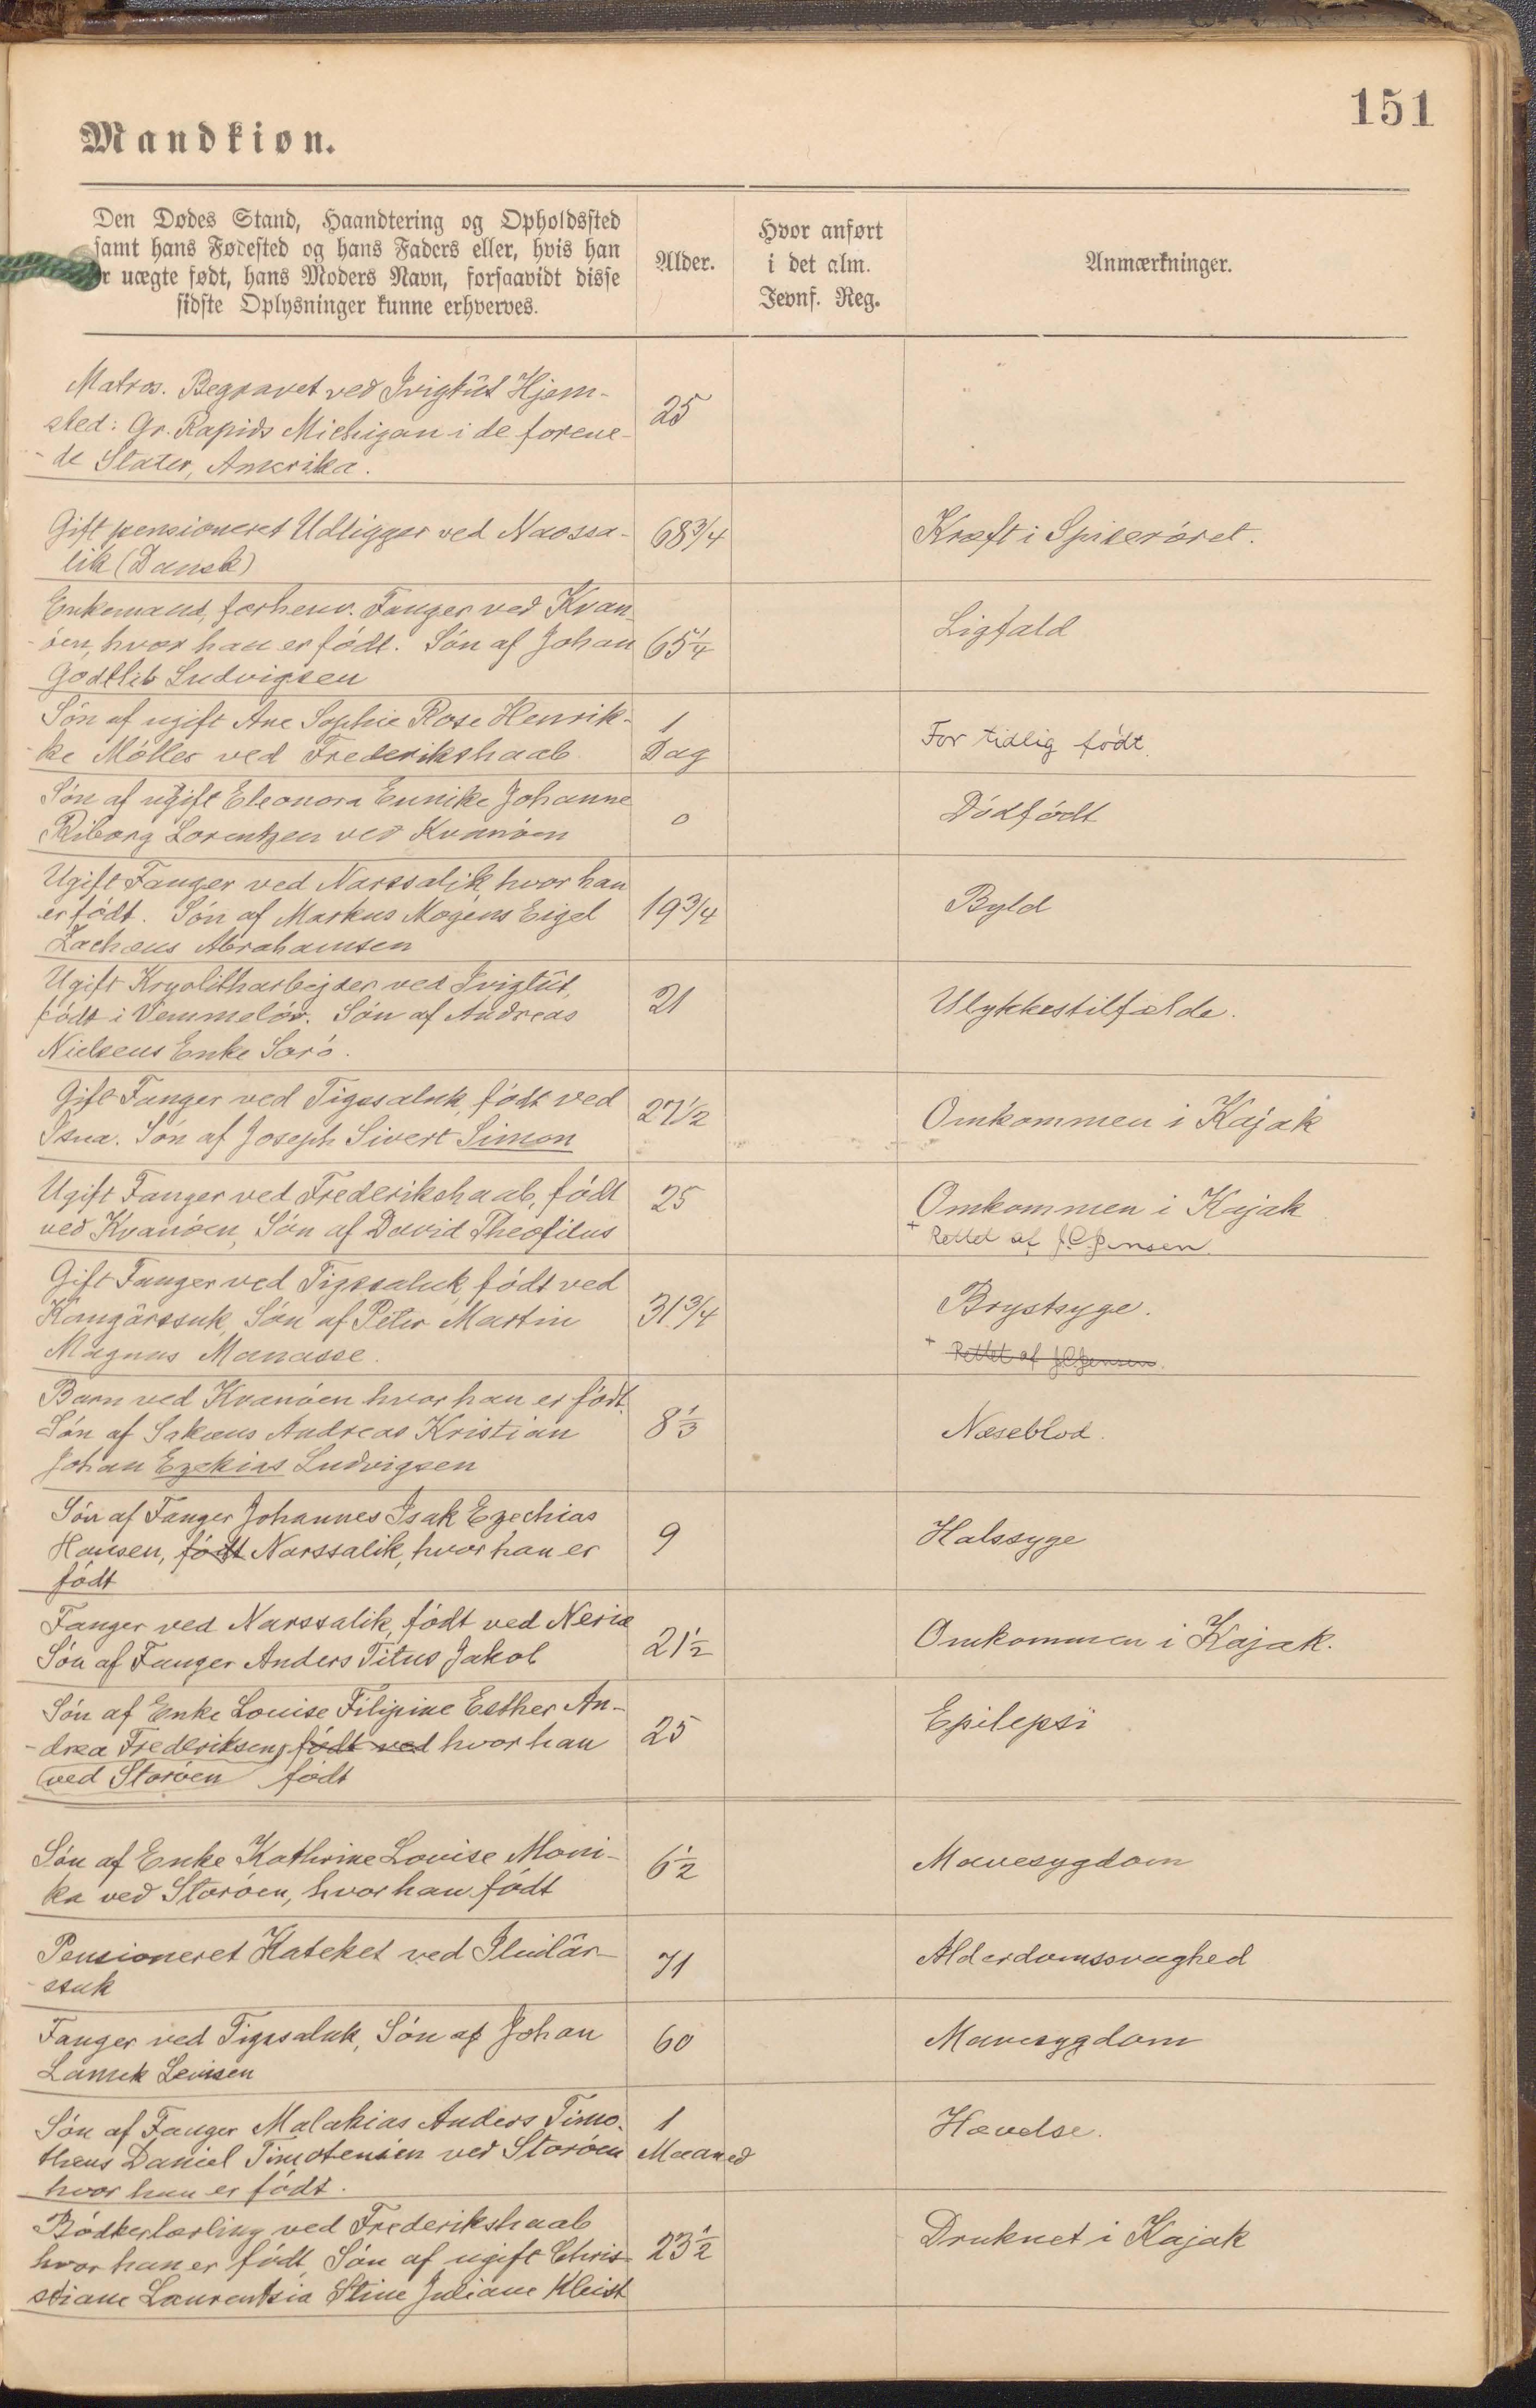 151
Mandkiøn.
Den Dødes Stand, Haandtering og Opholdssted
samt hans Fødested og hans Faders eller, hvis han
er uægte født, hans Moders Navn, forsaavidt disse
sidste Oplysninger kunne erhverves.
Alder.
Hvor anført
i det alm.
Jevnf. Reg.
Anmærkninger.
Matros. Begravet ved Ivigtût Hjem-
sted: Gr. Rapids Michigan i de forene-
-de Stater, Amerika.
25
Gift pensioneret Udligger ved Naossa-
lik (Dansk)
68 3/4
Kræft i Spiserøret.
Enkemand, forhenv. Fanger ved Kvan-
-øen, hvor han er født. Søn af Johan
Godtlib Ludvigsen
65 1/4
Ligfald
Søn af ugift Ane Sophie Rose Henrik-
-ke Møller ved Frederikshaab.
1
Dag
For tidlig født.
Søn af ugift Eleonora Eunike Johanne
Riborg Lorentzen ved Kvanøen
0
Dødfødt
Ugift Fanger ved Narssalik, hvor han
er født. Søn af Markus Mogens Eigel
Zachæus Abrahamsen
19 3/4
Byld
Ugift Kryolitharbejder ved Ivigtût,
født i Vemmeløv. Søn af Andreas
Nielsens Enke Sorø.
21
Ulykkestilfælde.
Gift Fanger ved Tigssaluk, født ved
Isua. Søn af Joseph Sivert Simon
27 1/2
Omkommen i Kajak
Ugift Fanger ved Frederikshaab, født
ved Kvanøen, Søn af David Theofilus
25
Omkommen i Kajak
+ Rettet af J.C.Jensen.
Gift Fanger ved Tigssaluk, født ved
Kangârssuk, Søn af Peter Martin
Magnus Manasse.
31 3/4
Brystsyge.
+ Rettet af J.C.Jensen.
Barn ved Kvanøen hvor han er født.
Søn af Sakæus Andreas Kristian
Johan Ezekias Ludvigsen
8 1/3
Næseblod.
Søn af Fanger Johannes Isak Ezechias
Hansen, født Narssalik, hvor han er
født
9
Halssyge
Fanger ved Narssalik, født ved Neria
Søn af Fanger Anders Titus Jakob
21 1/2
Omkommen i Kajak.
Søn af Enke Louise Filipine Esther An-
-drea Frederiksen, født ved hvor han
ved Storøen født
25
Epilepsi
Søn af Enke Kathrine Lovise Moni-
ka ved Storøen, hvor han født
6 1/2
Mavesygdom
Pensioneret Kateket ved Iluilâr-
-ssuk
71
Alderdomssvaghed
Fanger ved Tigssaluk, Søn af Johan
Lamek Levisen
60
Mavesygdom
Søn af Fanger Malakias Anders Timo-
theus Daniel Timoteusen ved Storøen
hvor han er født.
1
Maaned
Hævelse.
Bødkerlærling ved Frederikshaab
hvor han er født, Søn af ugift Chris-
stiane Laurentsia Stine Juliane Kleist
23 1/2
Druknet i Kajak